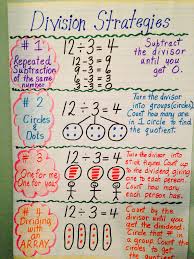 Division Strategies
# 1
Repeated
Subtraction
of the same
number
12 ÷ 3 = 4
12 - 3 = 9
9 - 3 = 6
6 - 3 = 3
3 - 3 = 0
Subtract
the divisor
until you
get 0.
# 2
Circles
&
Dots
12 ÷ 3 = 4
Turn the divisor
into groups (circles)
Count how many are
in 1 circle to find
the quotient.
# 3
One for me
One for you!
12 ÷ 3 = 4
Turn the divisor into
stick figures. Count up
to the dividend giving
one to each person.
Count how many
each person has.
# 4
Dividing
with an
ARRAY
12 ÷ 3 = 4
Count by the
divisor until you
get the dividend.
Circle three
in a group. Count
the circles to
get the Quotient